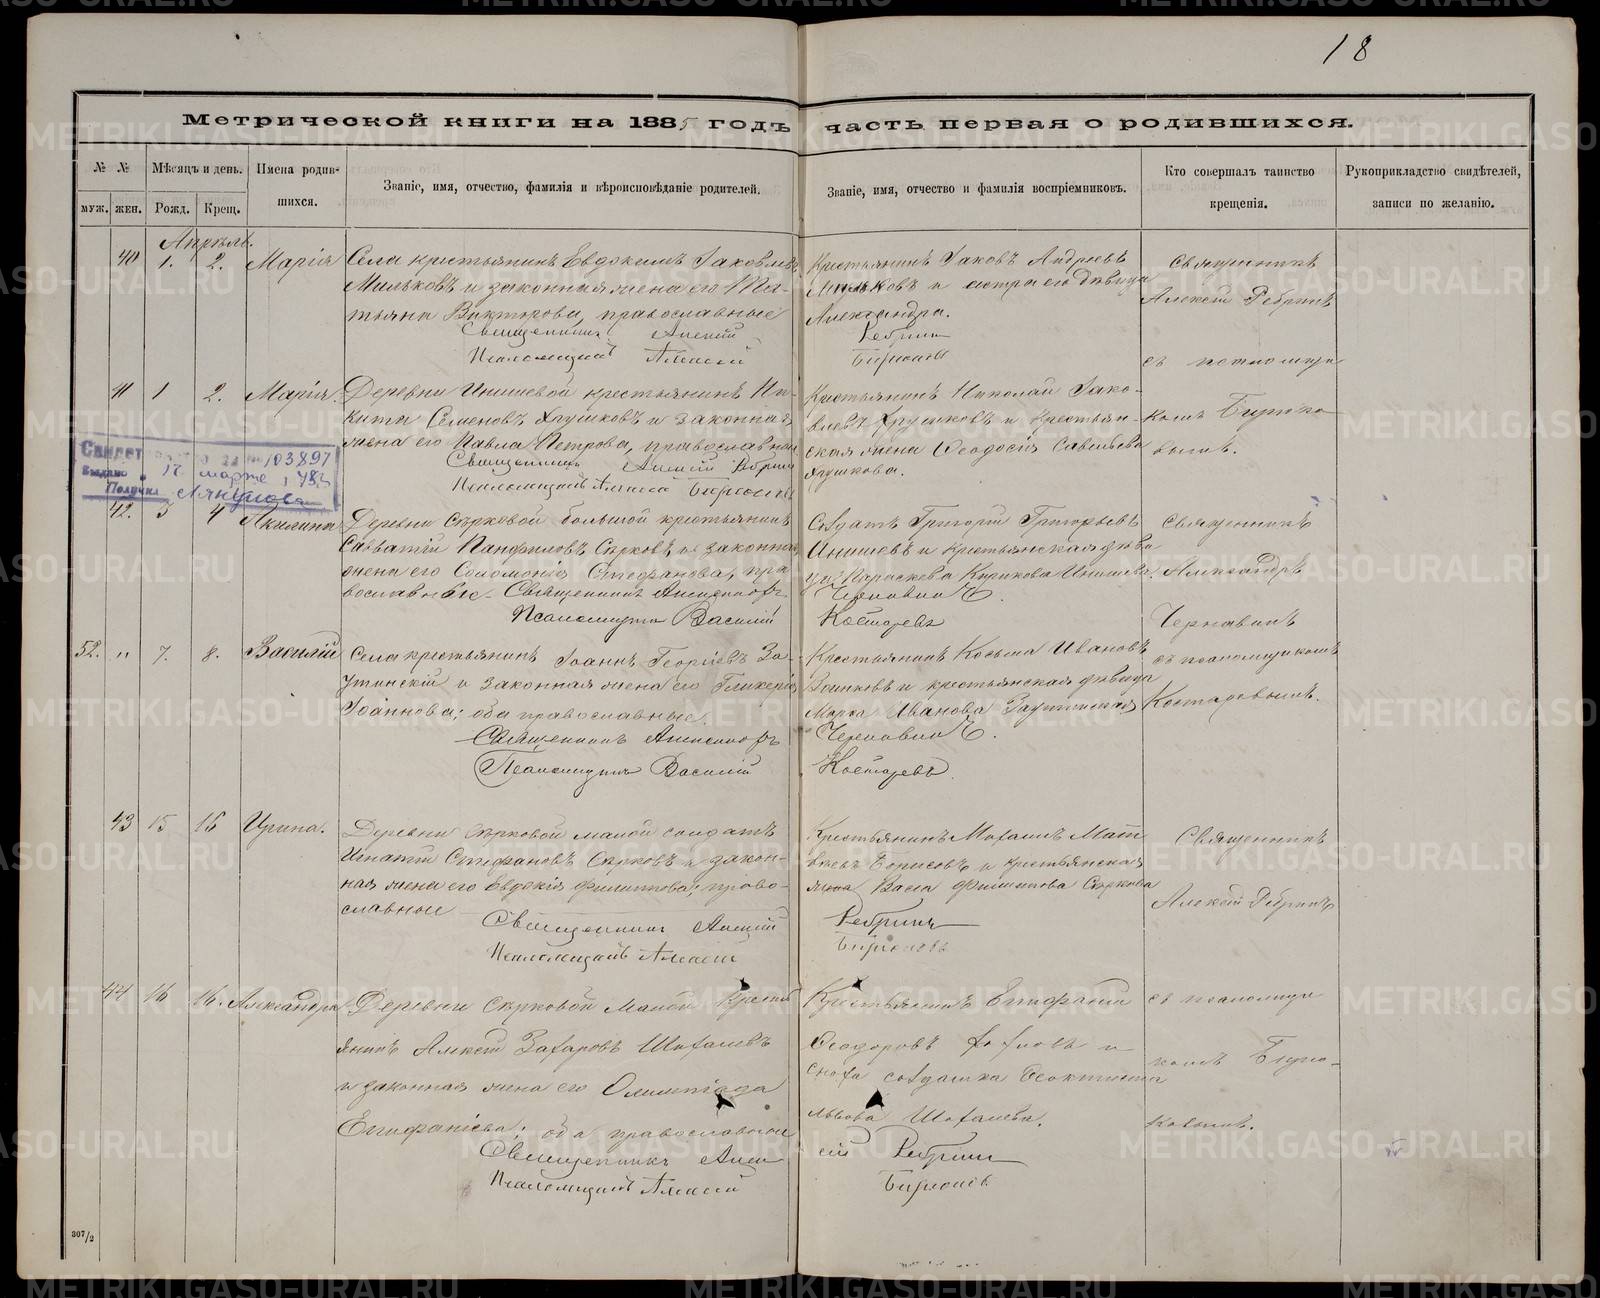 18
Метрической книги на 1885 годъ часть первая о родившихся.
№ №
муж. жен.
Мѣсяцъ и день.
Рожд. Крещ.
Имена родив-
шихся.
Званіе, имя, отчество, фамилія и вѣроисповѣданіе родителей.
Званіе, имя, отчество и фамилія воспріемниковъ.
Кто совершалъ таинство
крещенія.
Рукоприкладство свидѣтелей,
записи по желанію.
Апрѣль.
40 1. 2. Марія
Села крестьянинъ Евдокимъ Іаковлевъ
Мильковъ и законная жена его Та-
тьяна Викторова, православные
Священникъ Алексій
Псаломщикъ Алексій
Крестьянинъ Іаковъ Андреевъ
Мильковъ и сестра его дѣвица
Александра.
Ребринъ
Бирюковъ
Священникъ
Алексій Ребринъ
съ псаломщи
комъ Бирюко
вымъ.
41 1 2. Марія.
Деревни Инишевой крестьянинъ Ни-
кита Семеновъ Ярушковъ и законная
жена его Павла Петрова, православные
Священникъ Алексій Ребринъ
Псаломщикъ Алексій Бирюковъ
Крестьянинъ Николай Іако-
влевъ Ярушковъ и крестьян-
ская жена Ѳеодосія Савельева
Ярушкова.
103897
17 марта
Получил
42. 3 4 Акилина
Деревни Сѣрковой большой крестьянинъ
Савватій Панфиловъ Сѣрковъ и законная
жена его Соломонія Стефанова, пра
вославные. Священникъ Александръ
Псаломщикъ Василій
Солдатъ Григорій Григорьевъ
Инишевъ и крестьянская дѣви
ца Параскева Кирикова Инишева.
Чернавинъ.
Костаревъ
Священникъ
Александръ
Чернавинъ
съ псаломщикомъ
Костаревымъ.
52. " 7. 8. Василій
Села крестьянинъ Іоаннъ Георгіевъ За-
утинскій и законная жена его Гликерія
Іоаннова; оба православные.
Священникъ Александръ
Псаломщикъ Василій
Крестьянинъ Козьма Ивановъ
Воинковъ и крестьянская дѣвица
Марѳа Иванова
Чернавинъ.
Костаревъ.
43 15 16 Ирина.
Деревни Сѣрковой малой солдатъ
Игнатій Стефановъ Сѣрковъ и закон-
ная жена его Евдокія Филиппова; право-
славные
Священникъ Алексій
Псаломщикъ Алексій
Крестьянинъ Михаилъ Мат
веевъ Борисовъ и крестьянская
жена Васса Филиппова Сѣркова
Ребринъ
Бирюковъ
Священникъ
Алексій Ребринъ
съ псаломщи
комъ Бирю-
ковымъ.
44 16 16. Александра
Деревни Сѣрковой Малой крестья
янинъ Алексій Захаровъ Шихалевъ
и законная жена его Олимпіада
Епифаніева; оба православные
Священникъ Алек
Псаломщикъ Алексій
Крестьянинъ Епифаній
Ѳеодоровъ и
сноха солдатка Ѳеоктиста
Львова Шихалева.
сій Ребринъ
Бирюковъ
307/2
METRIKI.GASO-URAL.RU